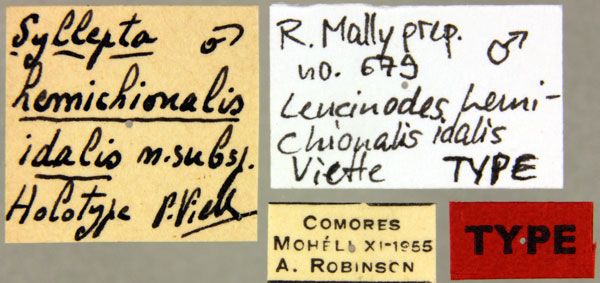 Syllepta ♂
hemichionalis
idalis n.subsp.
Holotype P.Viette
R. Mally prep. ♂
no. 679
Leucinodes hemi-
chionalis idalis
Viette TYPE
COMORES
MOHÉLI XI-1955
A. ROBINSON
TYPE